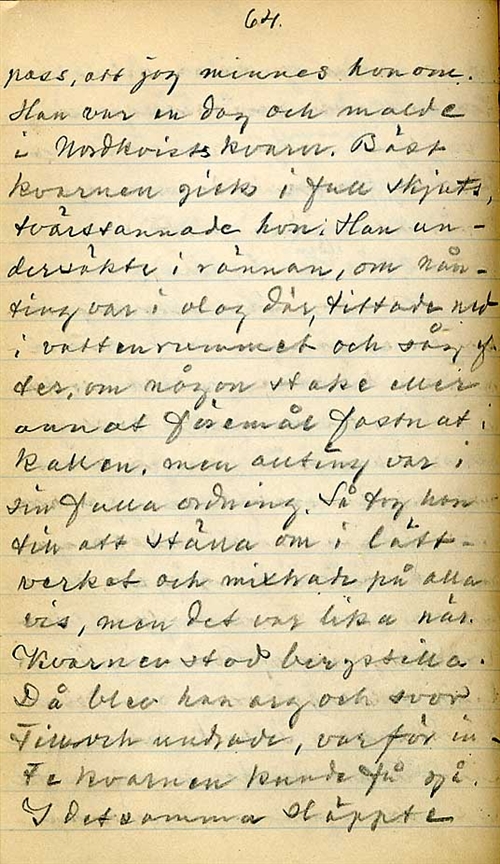 64.
pass, att jag minnes honom.
Han var en dag och malde
i Nordkvists kvarn. Bäst
kvarnen gick i full skjuts,
tvärstannade hon. Han un-
dersökte i rännan, om nån-
ting var i olag där, tittade ned
i vattenrummet och såg ef-
ter, om någon stake eller
annat föremål fastnat i
kallen, men allting var i
sin fulla ordning. Så tog han
till att ställa om i lätt-
verket och mixtrade på alla
vis, men det var lika när.
Kvarnen stod bergstilla.
Då blev han arg och svor
till och undrade, varför in-
te kvarnen kunde få gå.
I detsamma släppte